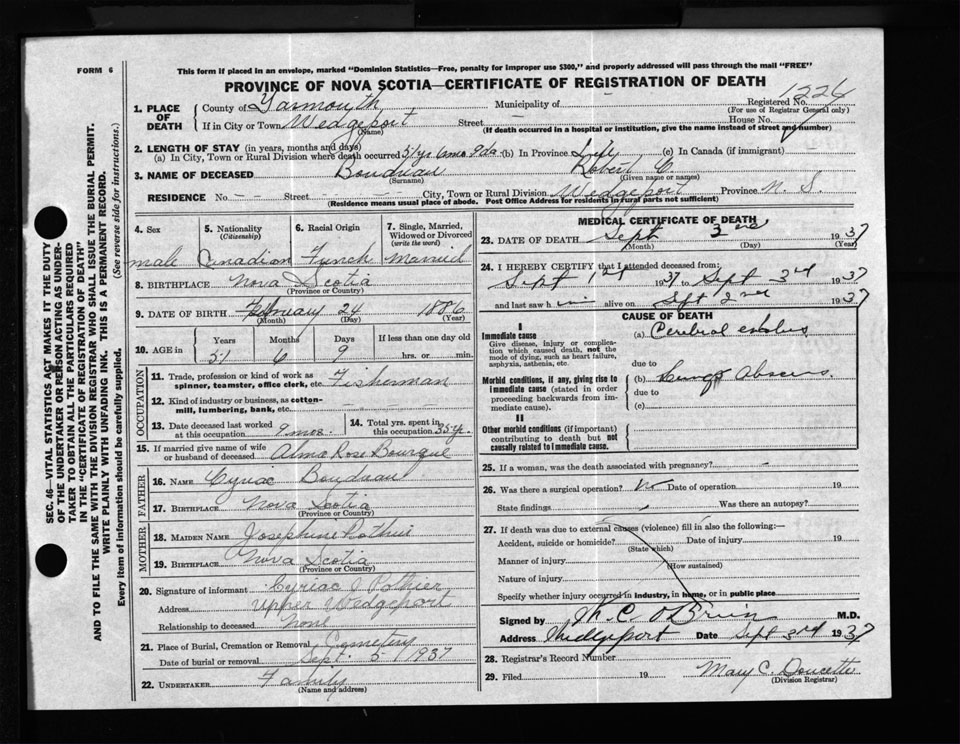 FORM 6
This form if placed in an envelope, marked "Dominion Statistics—Free, penalty for improper use $300," and properly addressed will pass through the mail "FREE"
PROVINCE OF NOVA SCOTIA—CERTIFICATE OF REGISTRATION OF DEATH
1. PLACE OF DEATH
County of Yarmouth Municipality of — Registered No. 1226
(For use of Registrar General only)
If in City or Town Wedgeport Street — House No.
(Name) (If death occurred in a hospital or institution, give the name instead of street and number)
2. LENGTH OF STAY (in years, months and days)
(a) In City, Town or Rural Division where death occurred 51 yrs 6 mos 9 da. (b) In Province Life (c) In Canada (if immigrant)
3. NAME OF DECEASED Boudreau Robert C.
(Surname) (Given name or names)
RESIDENCE No. – – Street City, Town or Rural Division Wedgeport Province N. S.
(Residence means usual place of abode. Post Office Address for residents in rural parts not sufficient)
4. Sex
5. Nationality (Citizenship)
6. Racial Origin
7. Single, Married, Widowed or Divorced (write the word)
male Canadian French Married
8. BIRTHPLACE Nova Scotia
(Province or Country)
9. DATE OF BIRTH February 24 1886
(Month) (Day) (Year)
10. AGE in Years Months Days If less than one day old
51 6 9 hrs. or min.
OCCUPATION
11. Trade, profession or kind of work as spinner, teamster, office clerk, etc. Fisherman
12. Kind of industry or business, as cotton-mill, lumbering, bank, etc.
13. Date deceased last worked at this occupation 9 mos.
14. Total yrs. spent in this occupation 35 yr.
15. If married give name of wife or husband of deceased Alma Rose Bourque
FATHER
16. NAME Cyriac Boudreau
17. BIRTHPLACE Nova Scotia
(Province or Country)
MOTHER
18. MAIDEN NAME Josephine Pothier
19. BIRTHPLACE Nova Scotia
(Province or Country)
20. Signature of informant Cyriac J Pothier
Address Upper Wedgeport
Relationship to deceased None
21. Place of Burial, Cremation or Removal Cemetery
Date of burial or removal Sept 5 1937
22. UNDERTAKER Family
(Name and address)
MEDICAL CERTIFICATE OF DEATH
23. DATE OF DEATH Sept 3rd 1937
(Month) (Day) (Year)
24. I HEREBY CERTIFY that I attended deceased from:
Sept 1st 1937 to Sept 3rd 1937
and last saw him alive on Sept 2nd 1937
CAUSE OF DEATH
I
Immediate cause
Give disease, injury or complication which caused death, not the mode of dying, such as heart failure, asphyxia, asthenia, etc.
(a) Cerebral
due to
Morbid conditions, if any, giving rise to immediate cause (stated in order proceeding backwards from immediate cause).
(b) Lung
due to
(c)
II
Other morbid conditions (if important) contributing to death but not causally related to immediate cause.
25. If a woman, was the death associated with pregnancy?
26. Was there a surgical operation? No Date of operation 19
State findings Was there an autopsy?
27. If death was due to external causes (violence) fill in also the following:—
Accident, suicide or homicide? Date of injury 19
(State which)
Manner of injury
(How sustained)
Nature of injury
Specify whether injury occurred in Industry, in home, or in public place
Signed by W. C. O'Brien M.D.
Address Wedgeport Date Sept 3rd 1937
28. Registrar's Record Number
29. Filed 19 Mary C. Doucette
(Division Registrar)
SEC. 46—VITAL STATISTICS ACT MAKES IT THE DUTY
OF THE UNDERTAKER OR PERSON ACTING AS UNDER-
TAKER TO OBTAIN ALL THE PARTICULARS REQUIRED
IN THE "CERTIFICATE OF REGISTRATION OF DEATH"
AND TO FILE THE SAME WITH THE DIVISION REGISTRAR WHO SHALL ISSUE THE BURIAL PERMIT.
WRITE PLAINLY WITH UNFADING INK. THIS IS A PERMANENT RECORD.
Every item of information should be carefully supplied. (See reverse side for instructions.)